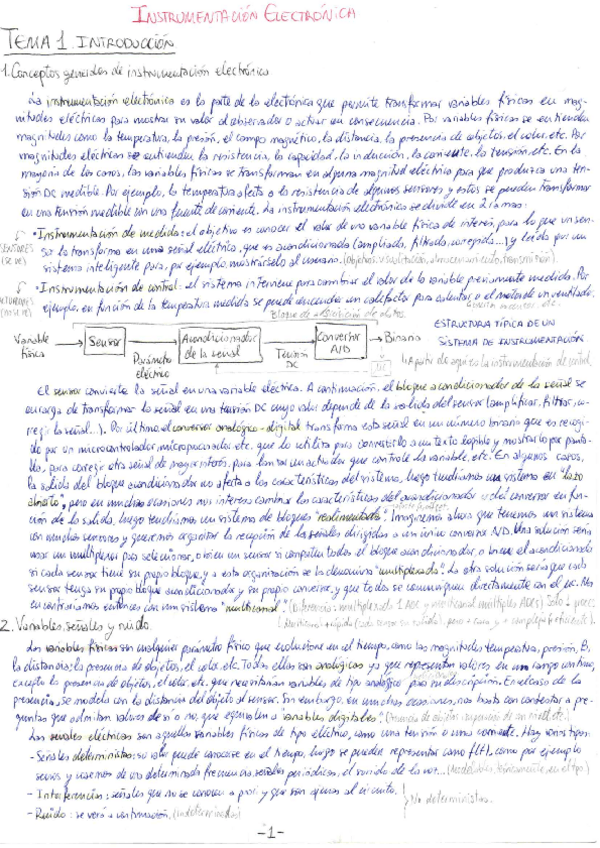 INSTRUMENTACIÓN ELECTRÓNICA
TEMA 1. INTRODUCCIÓN
1. Conceptos generales de instrumentación electrónica
La instrumentación electrónica es la parte de la electrónica que permite transformar variables físicas en mag-
nitudes eléctricas para mostrar su valor al observador o actuar en consecuencia. Por variables físicas se entienden
magnitudes como la temperatura, la presión, el campo magnético, la distancia, la presencia de objetos, el color, etc. Por
magnitudes eléctricas se entienden la resistencia, la capacidad, la inducción, la corriente, la tensión, etc. En la
mayoría de los casos, las variables físicas se transforman en alguna magnitud eléctrica para que produzca una ten-
sión DC medible. Por ejemplo, la temperatura afecta a la resistencia de algunos sensores y estos se pueden transformar
en una tensión medible con una fuente de corriente. La instrumentación electrónica se divide en 2 ramas:
• Instrumentación de medida: el objetivo es conocer el valor de una variable física de interés, para lo que un sen-
SENSORES
sor la transforma en una señal eléctrica, que es acondicionada (ampliada, filtrada, corregida...) y leída por un
(SE VE)
sistema inteligente para, por ejemplo, mostrárselo al usuario. (Objetivos: visualización, almacenamiento, transmisión).
• Instrumentación de control: el sistema interviene para cambiar el valor de la variable previamente medida. Por
ACTUADORES
(NO SE VE)
ejemplo, en función de la temperatura medida se puede encender un calefactor para calentar o el motor de un ventilador.
Bloque de adquisición de datos.
Variable física
Sensor
Parámetro eléctrico
Acondicionador de la señal
Tensión DC
Convertidor A/D
Binario
ESTRUCTURA TÍPICA DE UN
SISTEMA DE INSTRUMENTACIÓN
A partir de aquí es la instrumentación de control.
El sensor convierte la señal en una variable eléctrica. A continuación, el bloque acondicionador de la señal se
encarga de transformar la señal en una tensión DC cuyo valor depende de la salida del sensor (amplificar, filtrar, co-
rregir la señal...). Por último, el conversor analógico-digital transforma esta señal en un número binario que es recogi-
do por un microcontrolador, microprocesador etc. que lo utiliza para convertirlo a un texto legible y mostrarlo por panta-
lla, para corregir otra señal de mayor interés, para lanzar un actuador que controle la variable, etc. En algunos casos,
la salida del bloque acondicionador no afecta a las características del sistema, luego tendríamos un sistema en "lazo
abierto", pero en muchas ocasiones nos interesa cambiar las características del acondicionador o del conversor en fun-
ción de la salida, luego tendríamos un sistema de bloques "realimentado". Imaginemos ahora que tenemos un sistema
con muchos sensores y queremos organizar la recepción de las señales dirigidas a un único conversor A/D. Una solución sería
usar un multiplexor para seleccionar, o bien un sensor si comparten todos el bloque acondicionador, o bien el acondicionado
si cada sensor tiene su propio bloque, y a esta organización se la denomina "multiplexada". La otra solución sería que cada
sensor tenga su propio bloque acondicionador y su propio conversor, y que todos se comuniquen directamente con el uC. Nos
encontraríamos entonces con un sistema "multicanal". (Diferencia: multiplexado 1 ADC y multicanal múltiples ADCs)
2. Variables, señales y ruido.
Las variables físicas son cualquier parámetro físico que evoluciona en el tiempo, como las magnitudes temperatura, presión, B,
la distancia, la presencia de objetos, el color, etc. Todas ellas son analógicas ya que representan valores en un rango continuo,
excepto la presencia de objetos, el color, etc. que necesitarían variables de tipo analógico para su descripción. En el caso de la
presencia, se modela con la distancia del objeto al sensor. Sin embargo, en muchas ocasiones, nos basta con contestar a pre-
guntas que admitan valores de sí o no, que equivalen a variables digitales.
Las señales eléctricas son aquellas variables físicas de tipo eléctrico, como una tensión o una corriente. Hay varios tipos:
- Señales deterministas: su valor puede conocerse en el tiempo, luego se pueden representar como f(t), como por ejemplo
senos y cosenos de una determinada frecuencia, señales periódicas, el sonido de la voz...
- Interferencias: señales que no se conocen a priori y que son ajenas al circuito.
No deterministas.
- Ruido: se verá a continuación. (indeterminados)
-1-